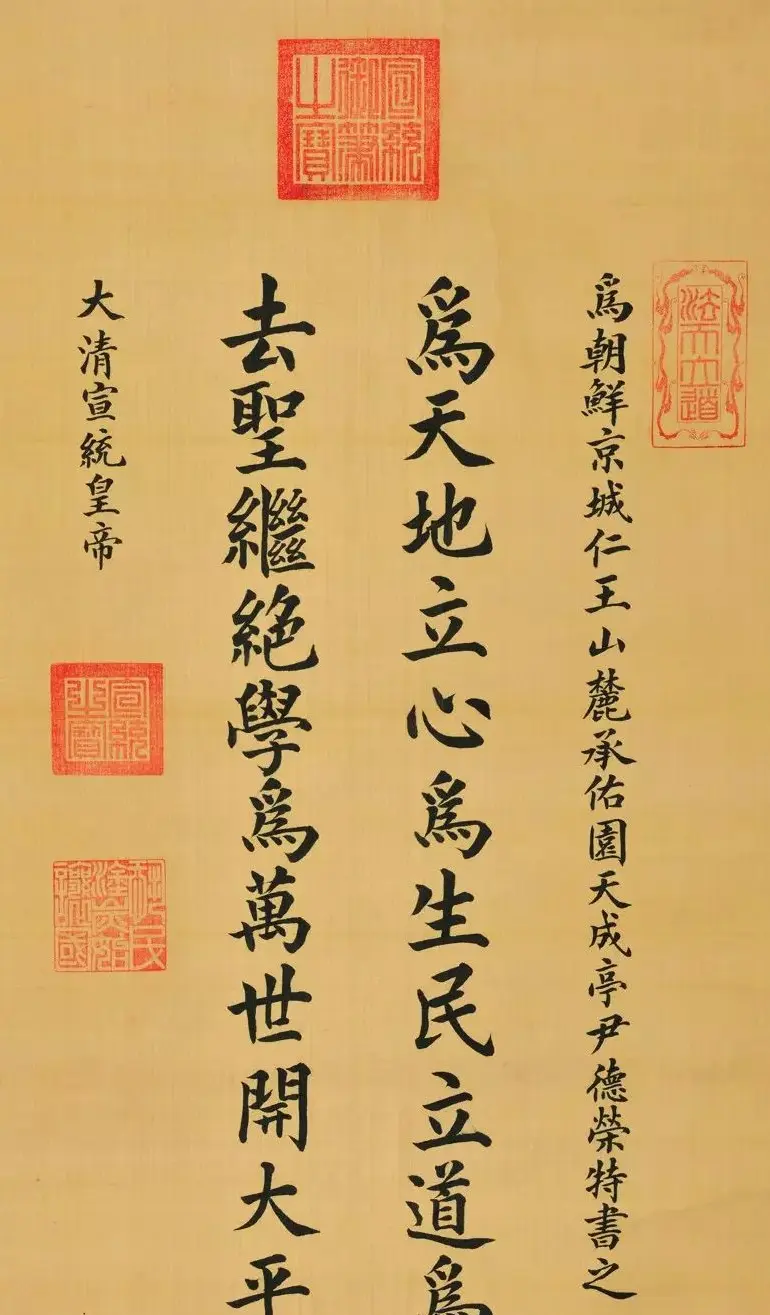 宣統御筆之寶
法天立道
爲朝鮮京城仁王山麓承佑園天成亭尹德榮特書之
爲天地立心爲生民立道爲
去聖繼絕學爲萬世開大平
大清宣統皇帝
宣統之寶